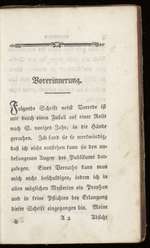 Vorerinnerung.
Folgende Schrift nebst Vorrede ist
mir durch einen Zufall auf einer Reise
nach S. vorigen Jahr, in die Hände
gerathen. Ich fand sie so merkwürdig,
daß ich nicht umhin kann sie den un-
befangenen Augen des Publikums dar-
zulegen. Eines Verraths kann man
mich nicht beschuldigen, indem ich in
allen möglichen Mysterien ein Profan
und in keine Pflichten bey Erlangung
dieser Schrift eingegangen bin. Meine
A 2 Absicht